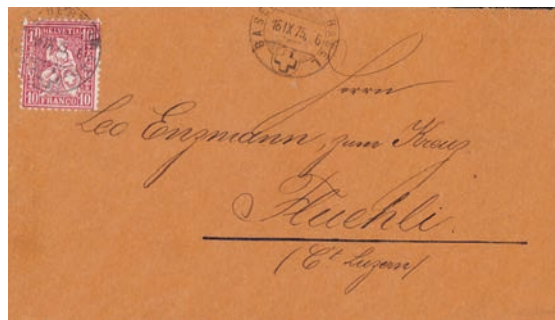 10 HELVETIA 10
FRANCO
10 10
BAS
16 IX 75. 6
Herrn
Leo Enzmann, zum Kreuz
Fluehli.
(Ct. Luzern)